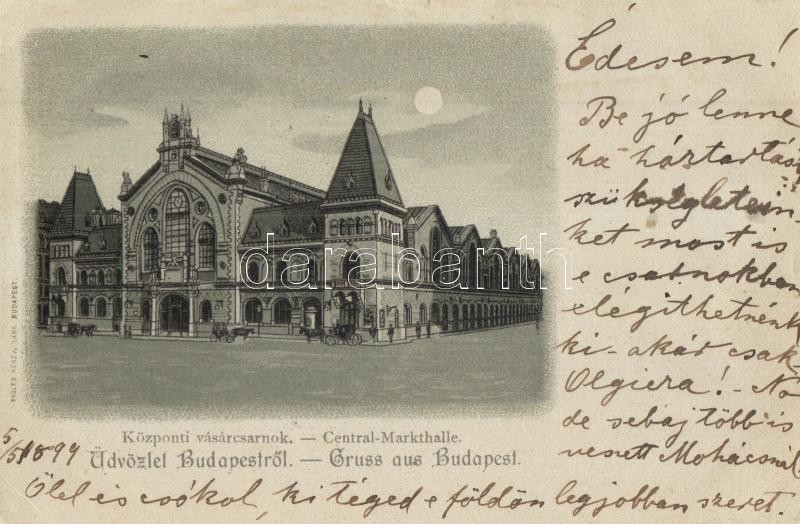 Édesem!
Be jó lenne
ha háztartás
szükségletein-
ket most is
e csarnokban
elégithetnénk
ki - akár csak
Olgiera! - No
de sebaj több is
veszett Mohácsnál
Ölel és csókol, ki téged e földön legjobban szeret.
5/5 1899
Központi vásárcsarnok. — Central-Markthalle.
Üdvözlet Budapestről. — Gruss aus Budapest.
darabanth